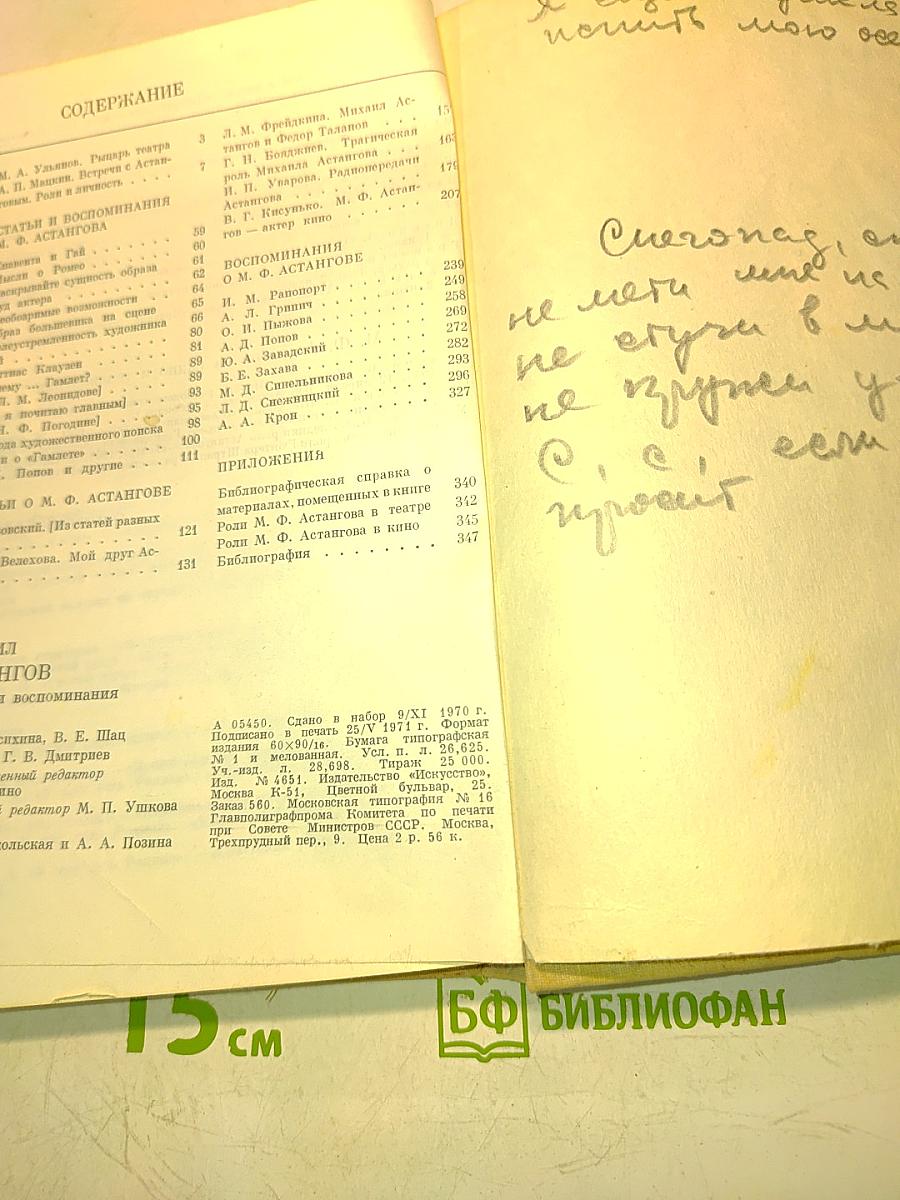 СОДЕРЖАНИЕ
М. А. Ульянов. Рыцарь театра 3
А. П. Мацкин. Встречи с Астан-
говым. Роли и личность . . . . 7
СТАТЬИ И ВОСПОМИНАНИЯ
М. Ф. АСТАНГОВА
и Гай . . . . . . . 59
о Ромео . . . . . . . 60
сущность образа 61
актера . . . . . . . 62
возможности 64
большевика на сцене 65
художника 66
. . . . . . . 80
Клаузен 81
... Гамлет? . . . . . 89
Л. М. Леонидове] . . . . 89
я почитаю главным] 93
Н. Ф. Погодине] . . . . 95
художественного поиска 98
о «Гамлете» . . . . . 100
Попов и другие . . . 111
О М. Ф. АСТАНГОВЕ
[Из статей разных
. . . . . . . 121
Велехова. Мой друг Ас-
. . . . . . . 131
Л. М. Фрейдкина. Михаил Ас-
тангов и Федор Таланов . . .
Г. Н. Бояджиев. Трагическая
роль Михаила Астангова . . . 163
И. П. Уварова. Радиопередачи
Астангова . . . . . . . 179
В. Г. Кисунько. М. Ф. Астан-
гов — актер кино . . . . . . 207
ВОСПОМИНАНИЯ
О М. Ф. АСТАНГОВЕ
И. М. Рапопорт . . . . . . . 239
А. Л. Грипич . . . . . . . 249
О. И. Пыжова . . . . . . . 258
А. Д. Попов . . . . . . . 269
Ю. А. Завадский . . . . . . 272
Б. Е. Захава . . . . . . . 282
М. Д. Синельникова . . . . . 293
Л. Д. Снежницкий . . . . . 296
А. А. Крон . . . . . . . 327
ПРИЛОЖЕНИЯ
Библиографическая справка о
материалах, помещенных в книге 340
Роли М. Ф. Астангова в театре 342
Роли М. Ф. Астангова в кино 345
Библиография . . . . . . . 347
воспоминания
В. Е. Шац
Г. В. Дмитриев
редактор
редактор М. П. Ушкова
и А. А. Позина
А 05450. Сдано в набор 9/XI 1970 г.
Подписано в печать 25/V 1971 г. Формат
издания 60×90/16. Бумага типографская
№ 1 и мелованная. Усл. п. л. 26,625.
Уч.-изд. л. 28,698. Тираж 25 000.
Изд. № 4651. Издательство «Искусство»,
Москва К-51, Цветной бульвар, 25.
Заказ 560. Московская типография № 16
Главполиграфпрома Комитета по печати
при Совете Министров СССР. Москва,
Трехпрудный пер., 9. Цена 2 р. 56 к.
Я
мою
Снегопад,
не мети мне
не стучи в
не кружи у
С, с, если
просит
15 см
БФ БИБЛИОФАН